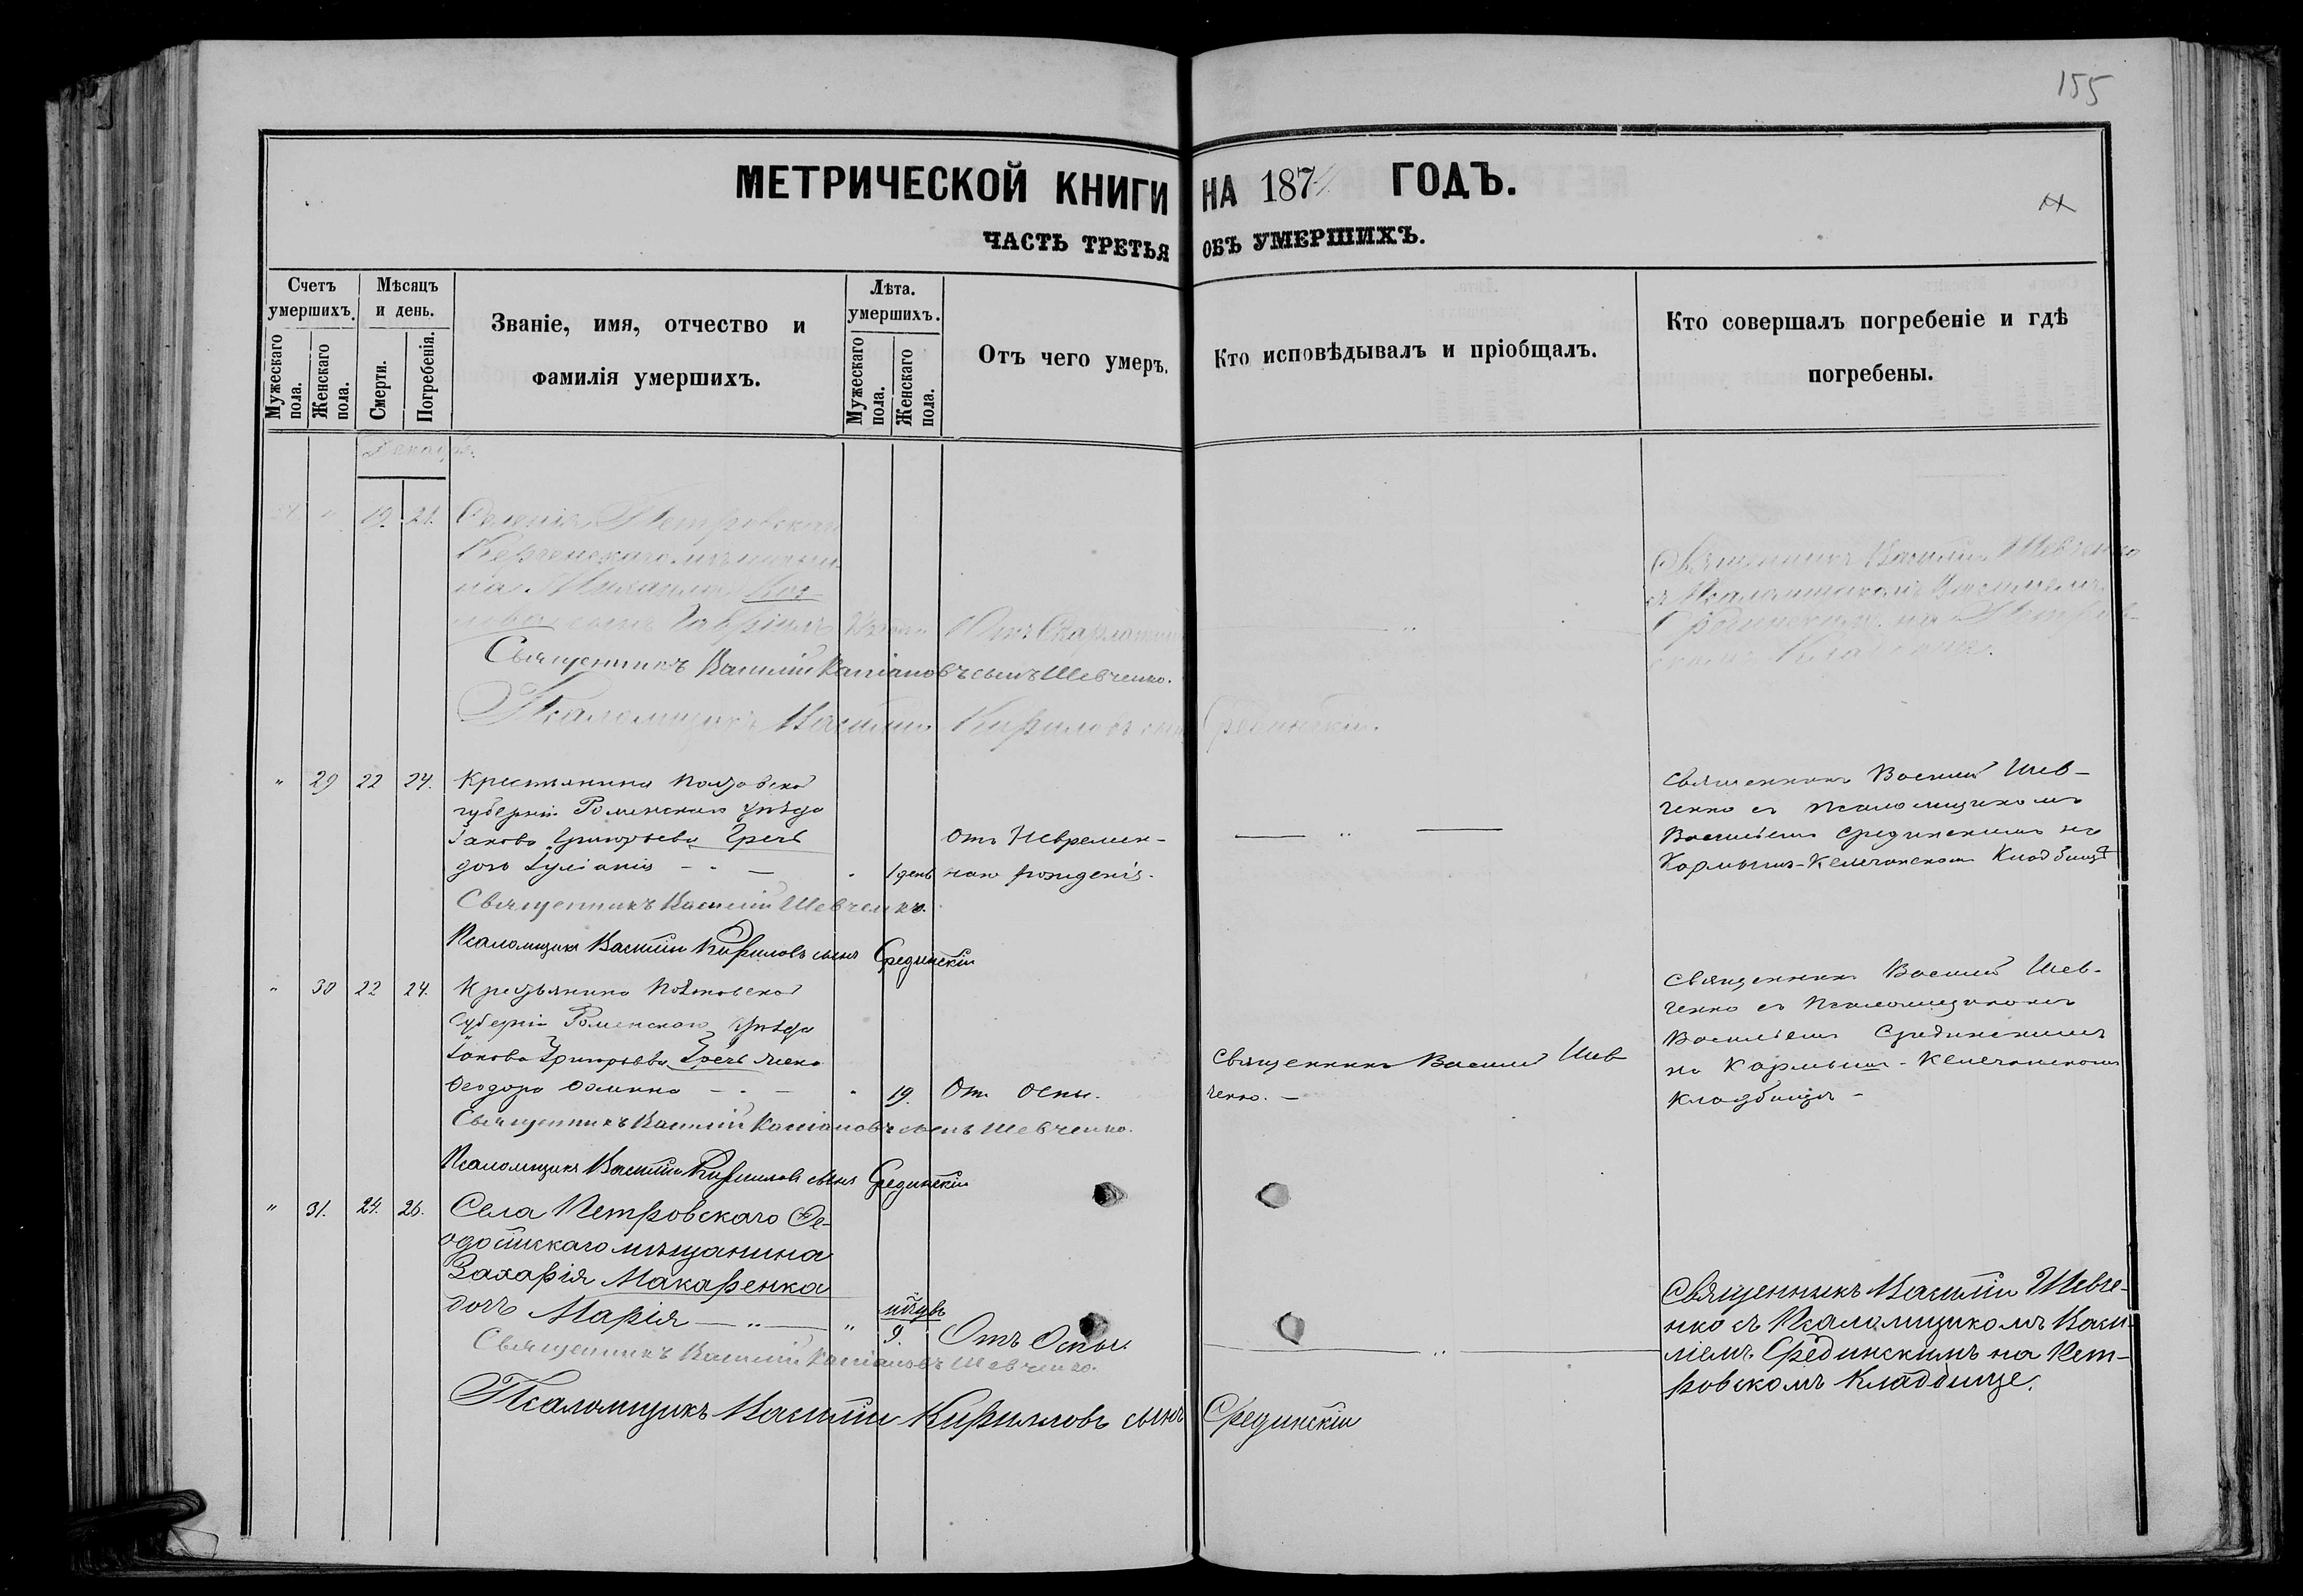 155
МЕТРИЧЕСКОЙ КНИГИ НА 187 ГОДЪ.
ЧАСТЬ ТРЕТЬЯ ОБЪ УМЕРШИХЪ.
Счетъ умершихъ.
Мужескаго пола.
Женскаго пола.
Мѣсяцъ и день.
Смерти.
Погребенія.
Званіе, имя, отчество и
фамилія умершихъ.
Лѣта. умершихъ.
Мужескаго пола.
Женскаго пола.
Отъ чего умеръ.
Кто исповѣдывалъ и пріобщалъ.
Кто совершалъ погребеніе и гдѣ
погребены.
Декабрь.
19. 21. Селенія Петровскаго
Керченскаго мѣщани-
на Михаила
сынъ Гавріилъ Отъ Скарлатины
Священникъ Василій Шевченко
съ Псаломщикомъ Василіемъ
Срединскимъ на Петров-
скомъ Кладбище.
Священникъ Василій Кассіановъ сынъ Шевченко.
Псаломщикъ Василій Кириловъ сынъ Срединскій.
" 29 22 24. Крестьянина Полтавской
губерніи Роменскаго уѣзда
Іакова Григорьева Гречь
дочь Іуліанія - - — " 1 день
Отъ Невремен-
наго рожденія.
— " —
Священникъ Василій Шев-
ченко съ псаломщикомъ
Василіемъ Срединскимъ на
Кармышъ-Келечинскомъ Кладбищѣ
Священникъ Василій Шевченко.
Псаломщикъ Василій Кириловъ сынъ Срединскій
" 30 22 24. Крестьянина Полтавской
Губерніи Роменскаго Уѣзда
Іакова Григорьева Гречь жена
Феодора Фомина — - — " 19. Отъ Оспы.
Священникъ Василій Шев-
ченко. —
Священникъ Василій Шев-
ченко съ Псаломщикомъ
Василіемъ Срединскимъ
на Кармышъ-Келечинскомъ
Кладбищѣ -
Священникъ Василій Кассіановъ сынъ Шевченко.
Псаломщикъ Василій Кириловъ сынъ Срединскій
" 31. 24. 26. Села Петровскаго Фе-
одосійскаго мѣщанина
Захарія Макаренка
дочь Марія — " — " 9. Отъ Оспы.
— " —
Священникъ Василій Шевче-
нко съ Псаломщикомъ Васи-
лiемъ Срединскимъ на Пет-
ровскомъ Кладбище.
Священникъ Василій Кассіановъ Шевченко.
Псаломщикъ Василій Кирилловъ сынъ Срединскій